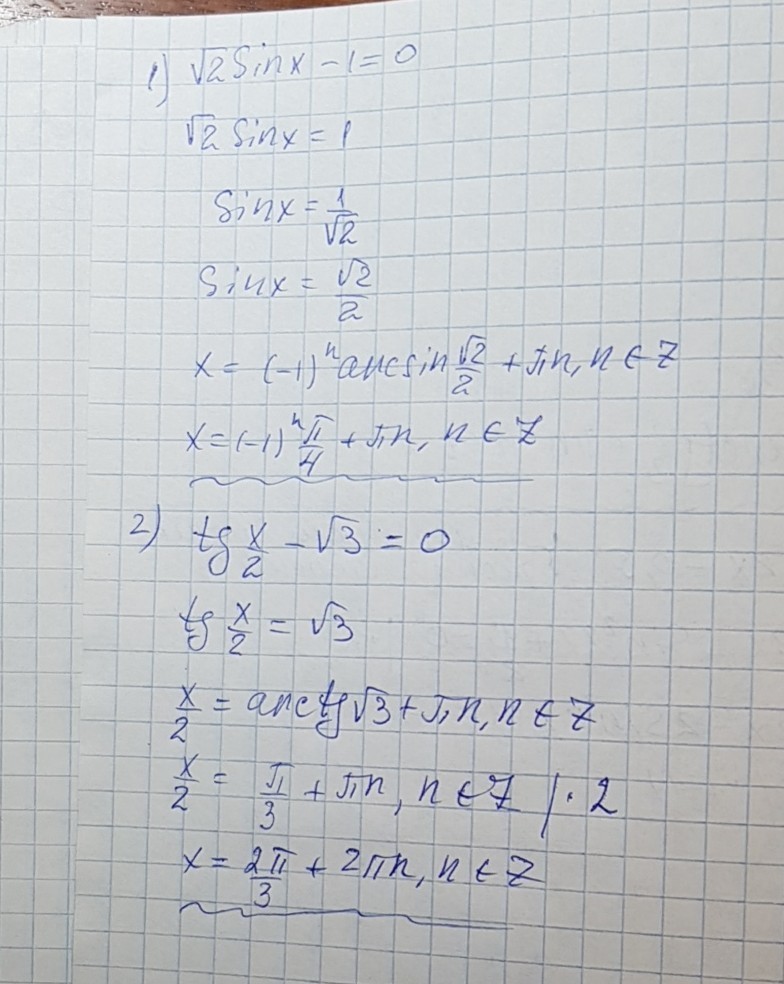 1) √2 Sinx − 1 = 0
√2 Sinx = 1
Sinx = 1/√2
Sinx = √2/2
x = (-1)ⁿ arcsin √2/2 + πn, n ∈ Z
x = (-1)ⁿ π/4 + πn, n ∈ Z
2) tg x/2 − √3 = 0
tg x/2 = √3
x/2 = arctg √3 + πn, n ∈ Z
x/2 = π/3 + πn, n ∈ Z | · 2
x = 2π/3 + 2πn, n ∈ Z